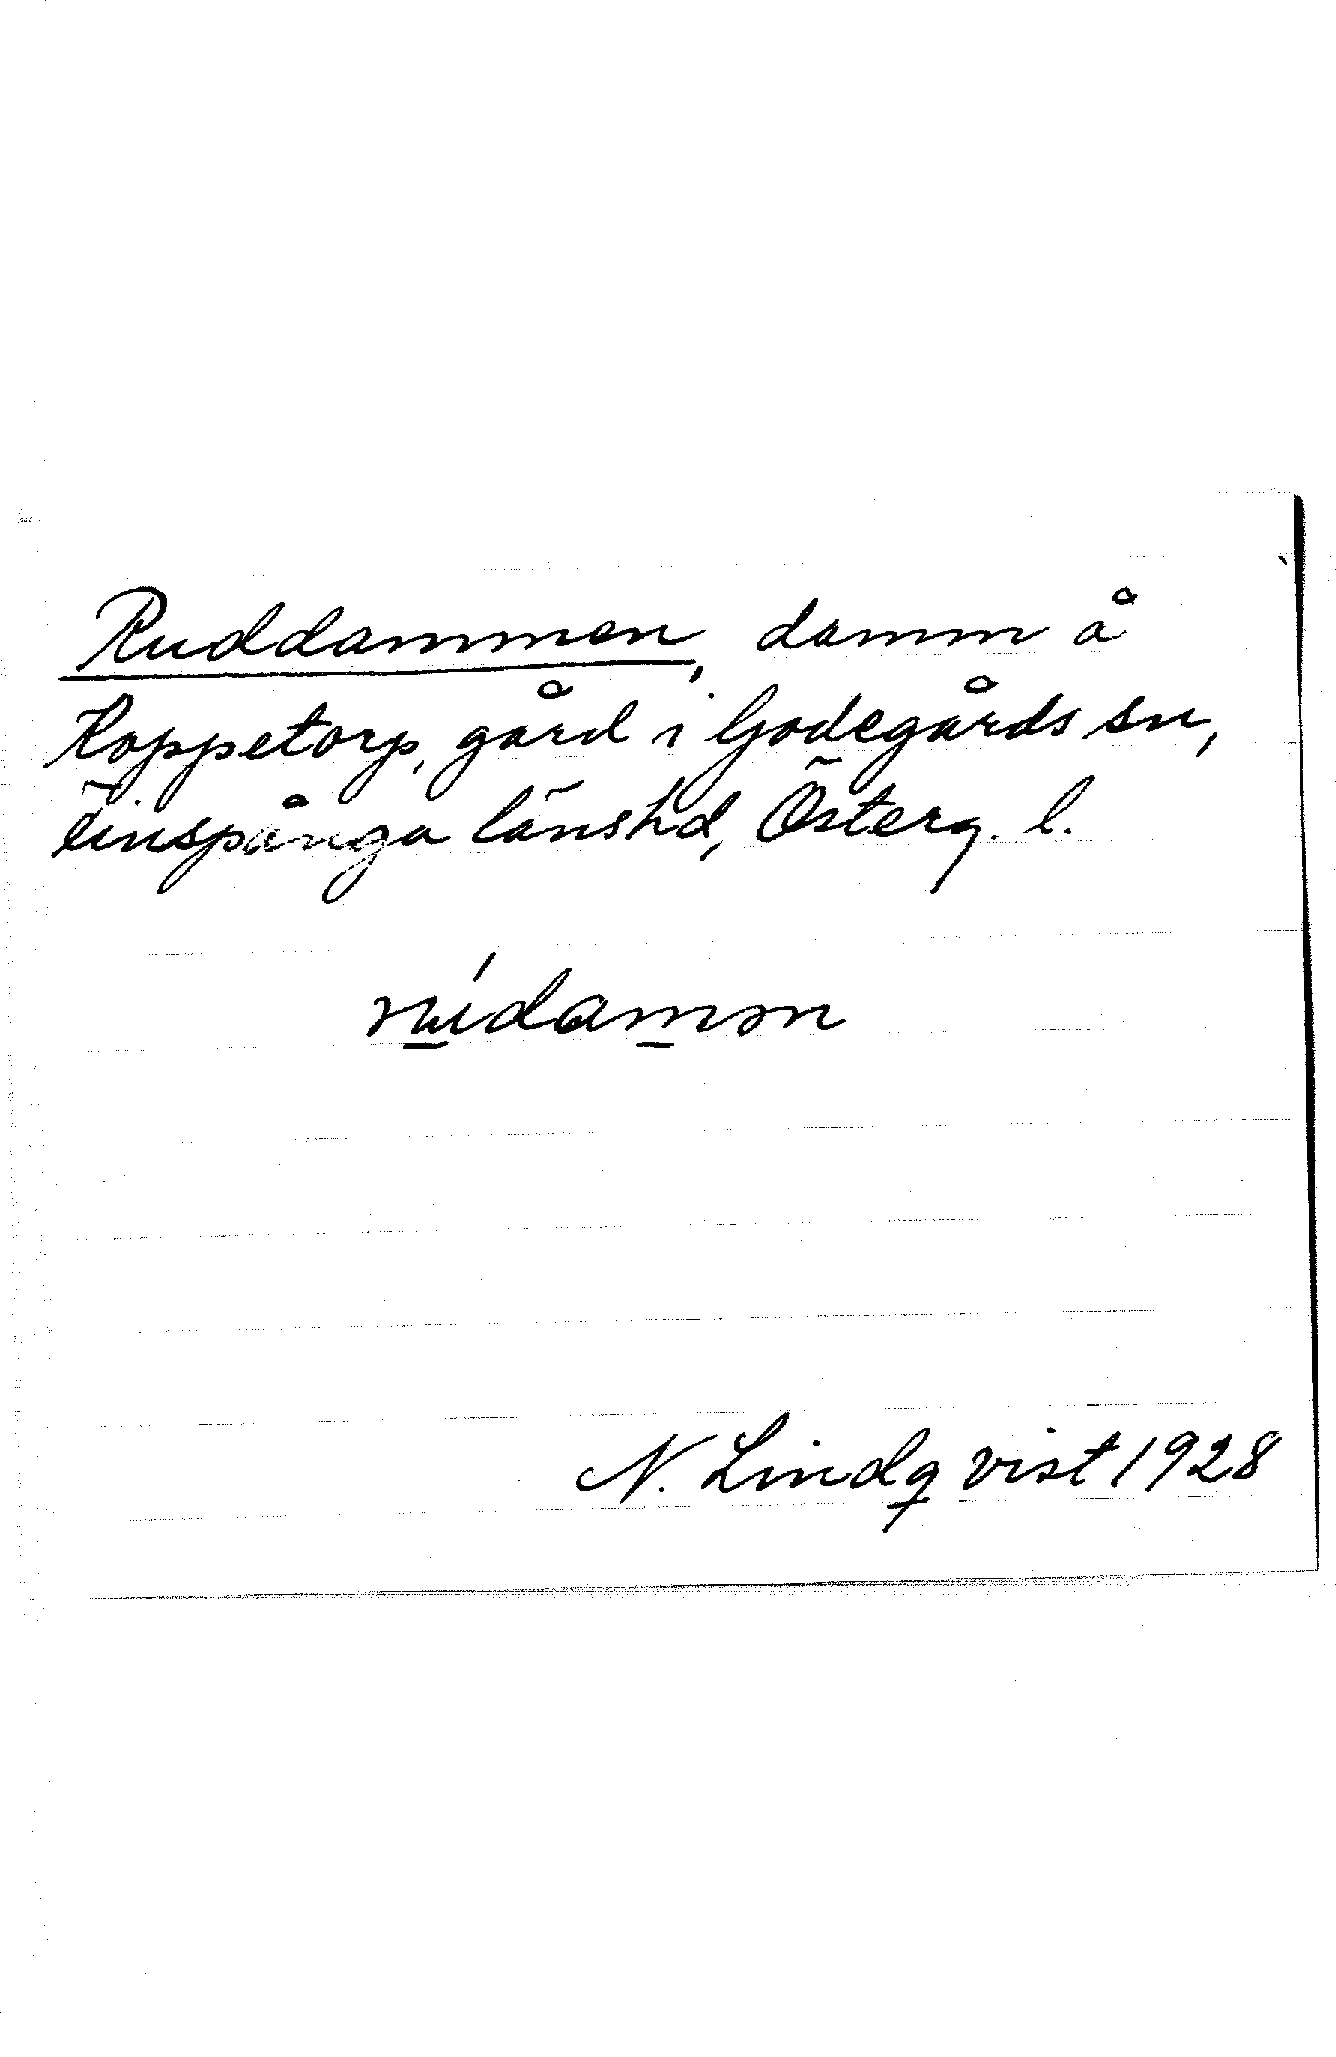 Ruddammen, damm å
Koppetorp, gård i Godegårds sn,
Finspånga länshd, Österg. l.
rúdamən
N. Lindqvist 1928